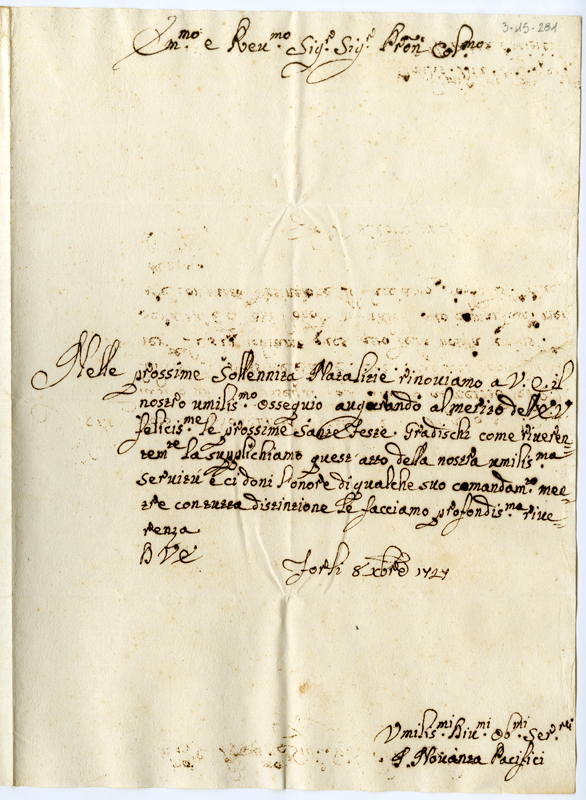 3-15-281
Em.mo e Reu.mo Sig.r Sig.r Pron Col.mo
Nelle prossime Sollennità Natalizie rinoviamo a V. E. il
nostro umilis.mo ossequio augurando al merito dell' E. V.
felicis.me le prossime Sante Feste. Gradischi come riueren-
tem.te la supplichiamo quest' atto della nostra umilis.ma
seruitù e ci doni l'onore di qualche suo comandam.to men-
tre con tutta distinzione le facciamo profondis.ma riue-
renza
D V E
Forlì 8 xbre 1727
Vmilis.mi Diu.mi Ob.mi Ser.ri
I Nouanta Pacifici